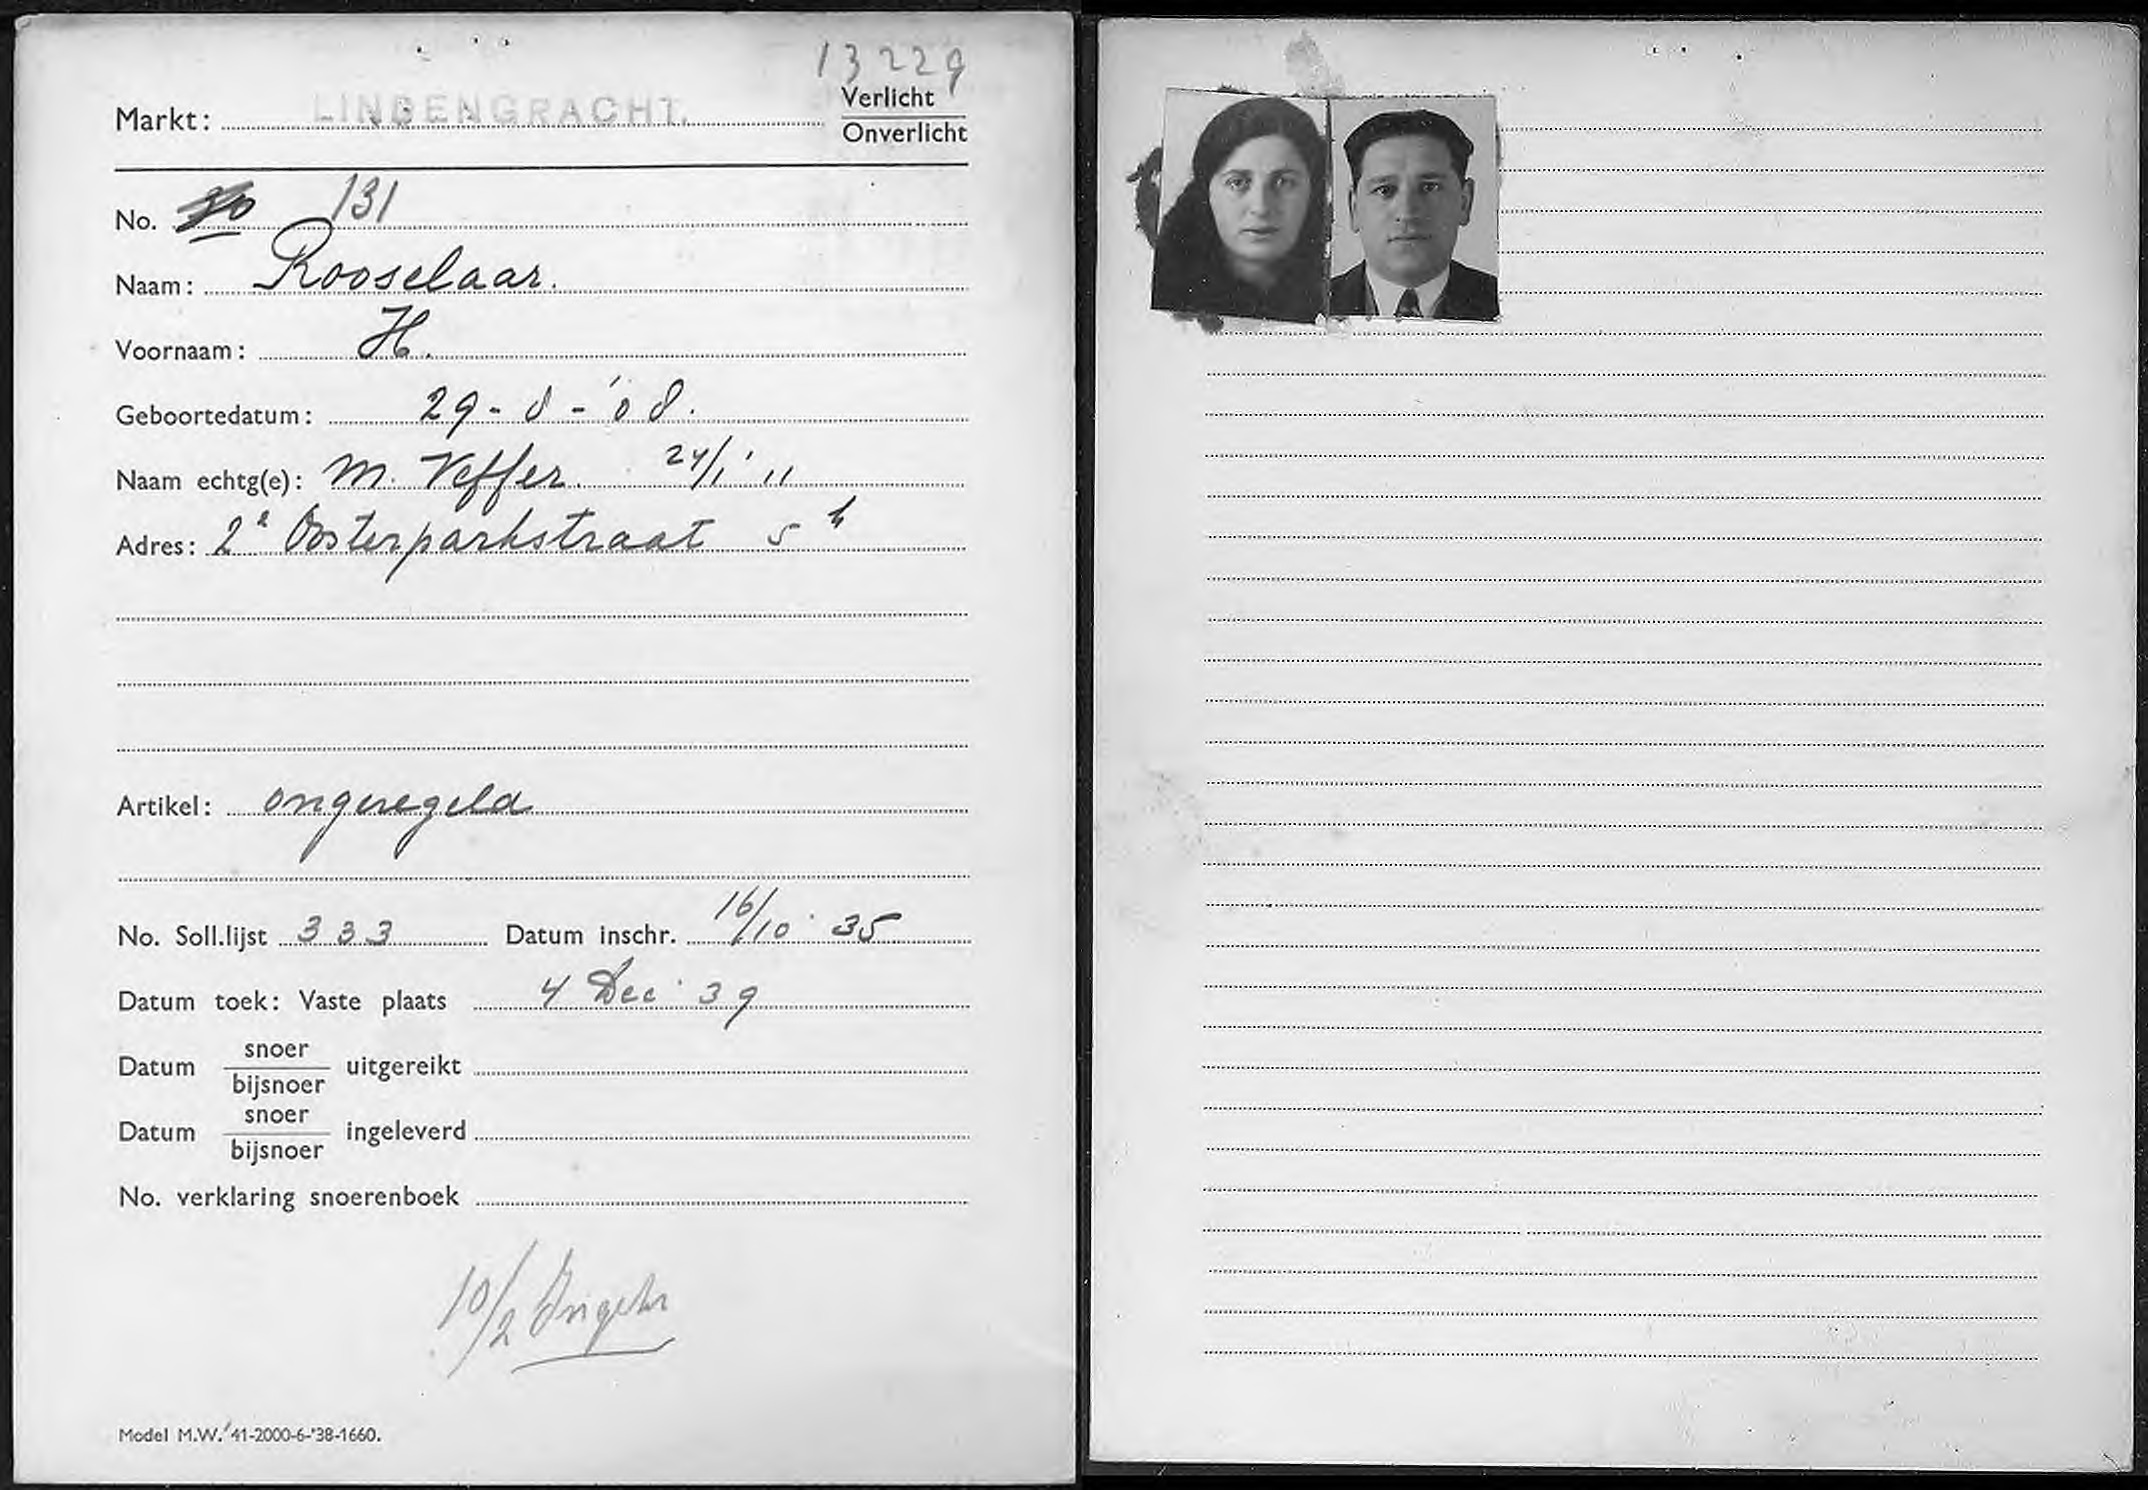 13229
Markt: LINDENGRACHT. Verlicht
Onverlicht
No. 131
Naam: Rooselaar.
Voornaam: H.
Geboortedatum: 29-8-'08.
Naam echtg(e): M. Veffer. 24/1'11
Adres: 2e Oosterparkstraat 5 h
Artikel: ongeregeld
No. Soll.lijst 333 Datum inschr. 16/10 '35
Datum toek: Vaste plaats 4 Dec '39
Datum snoer/bijsnoer uitgereikt
Datum snoer/bijsnoer ingeleverd
No. verklaring snoerenboek
10/2
Model M.W.'41-2000-6-'38-1660.